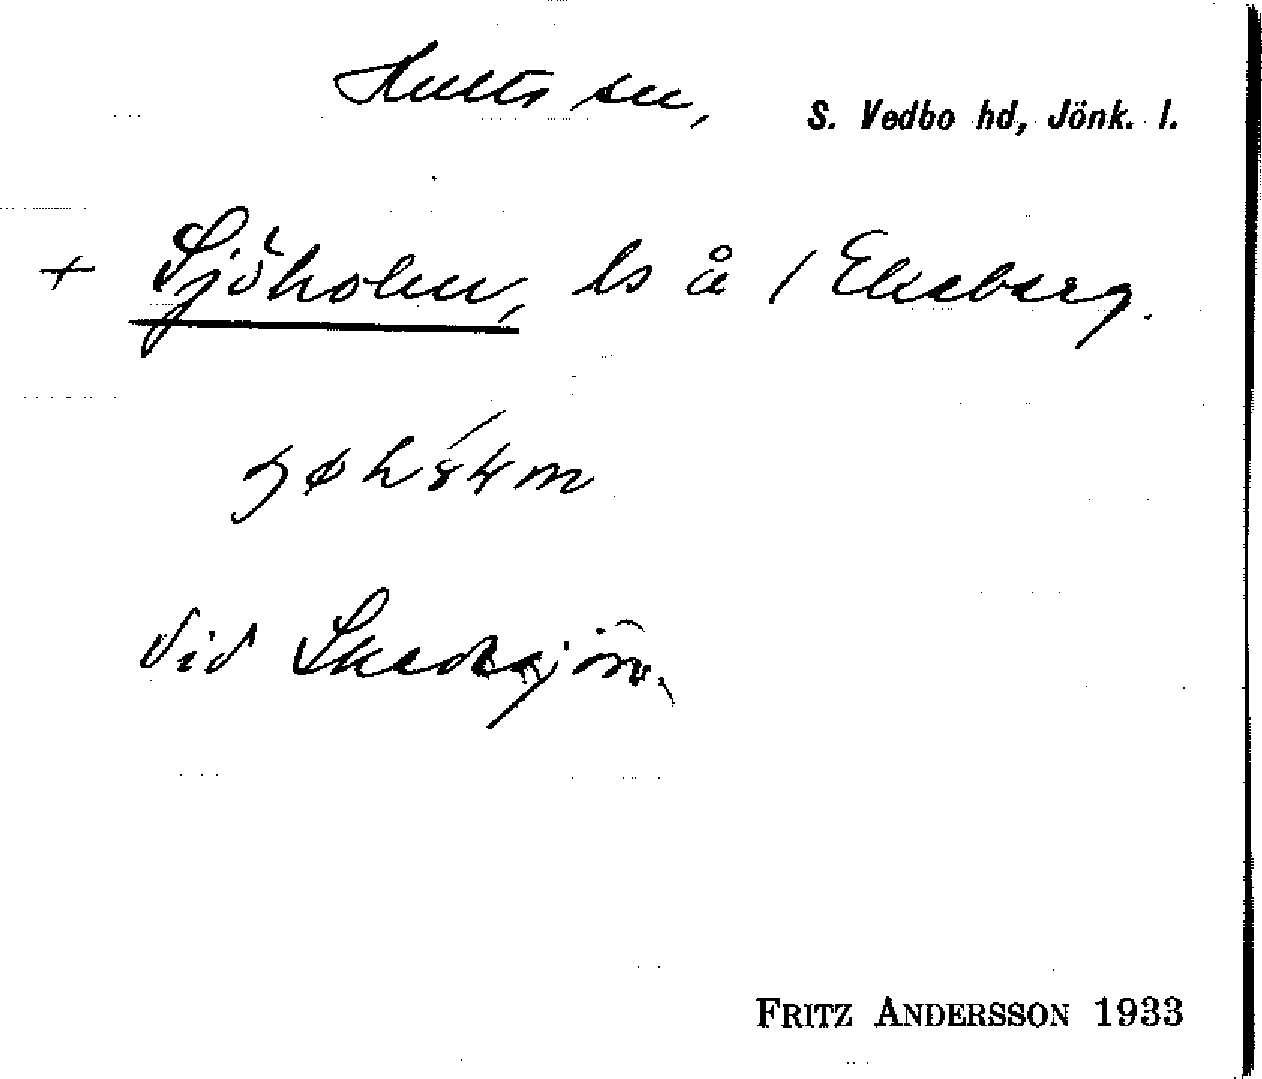 Hults sn, S. Vedbo hd, Jönk. l.
+ Sjöholm, ls å 1 Ekeberg.
vid Skedesjön.
FRITZ ANDERSSON 1933